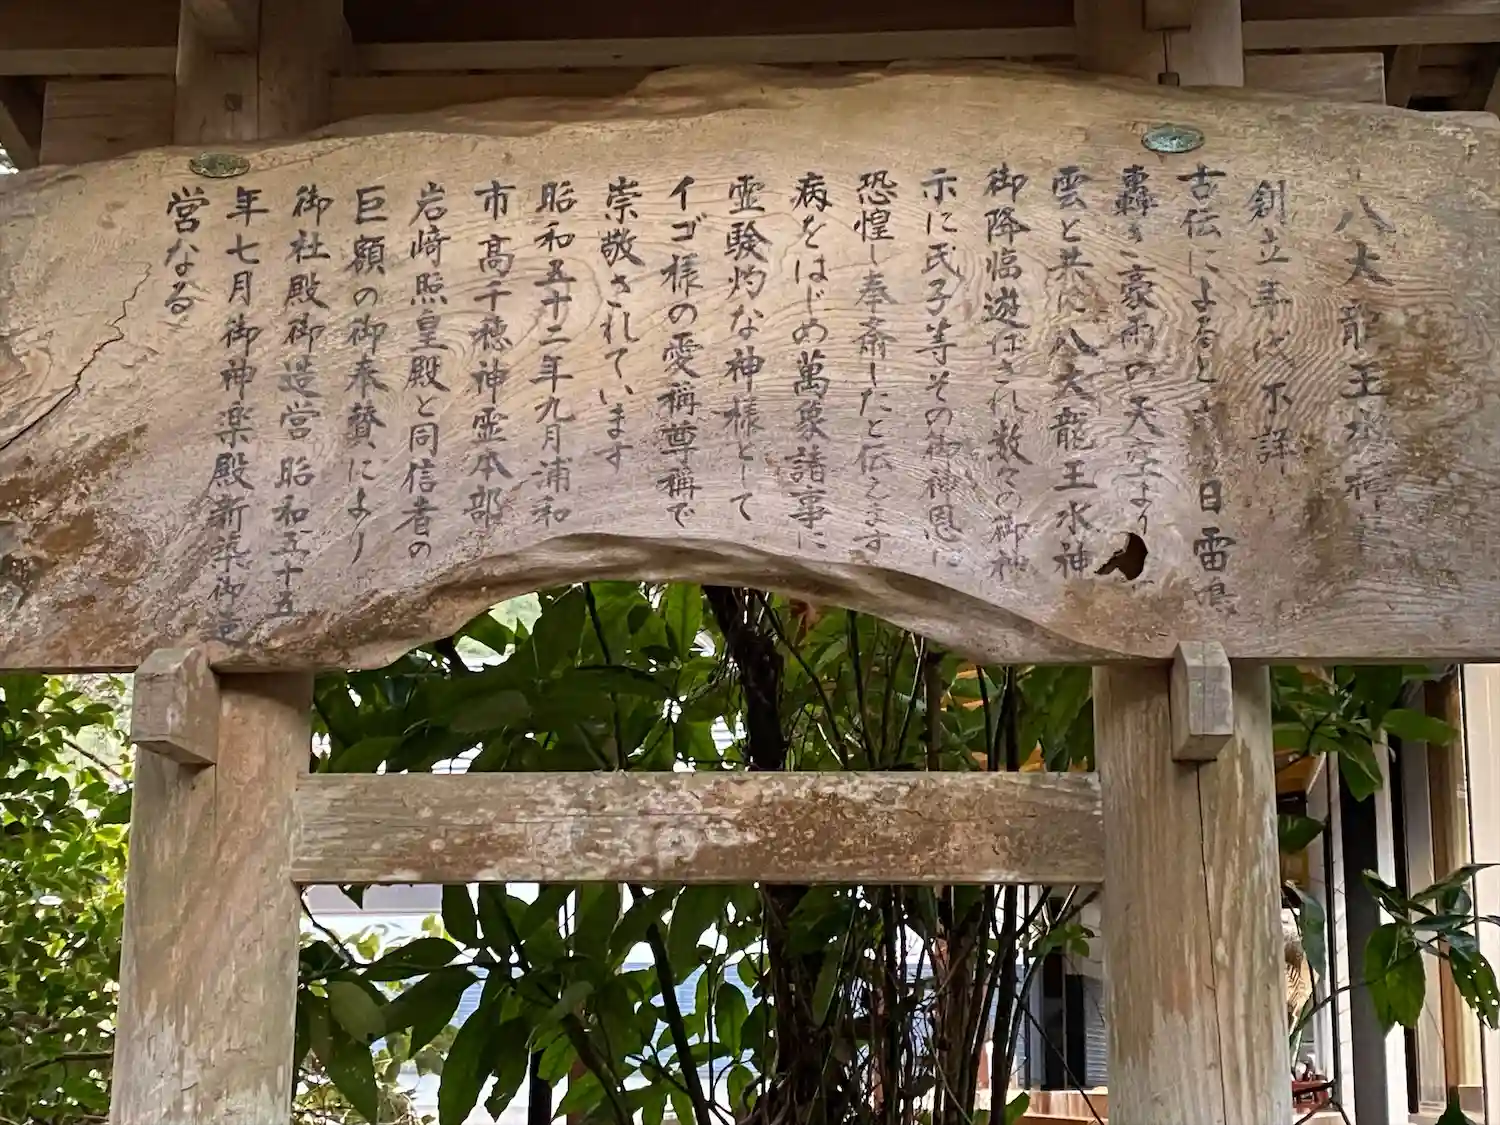 八大龍王水神
創立年代不詳
古伝によると 日雷鳴
轟き豪雨の天空より
雲と共に八大龍王水神
御降臨遊ばされ数々の御神
示に氏子等その御神恩に
恐惶し奉斎したと伝えます
病をはじめ萬象諸事に
霊験灼な神様として
イゴ様の愛称尊称で
崇敬されています
昭和五十二年九月浦和
市高千穂神霊本部
岩﨑照皇殿と同信者の
巨額の御奉賛により
御社殿御造営昭和五十五
年七月御神楽殿新築御造
営なる